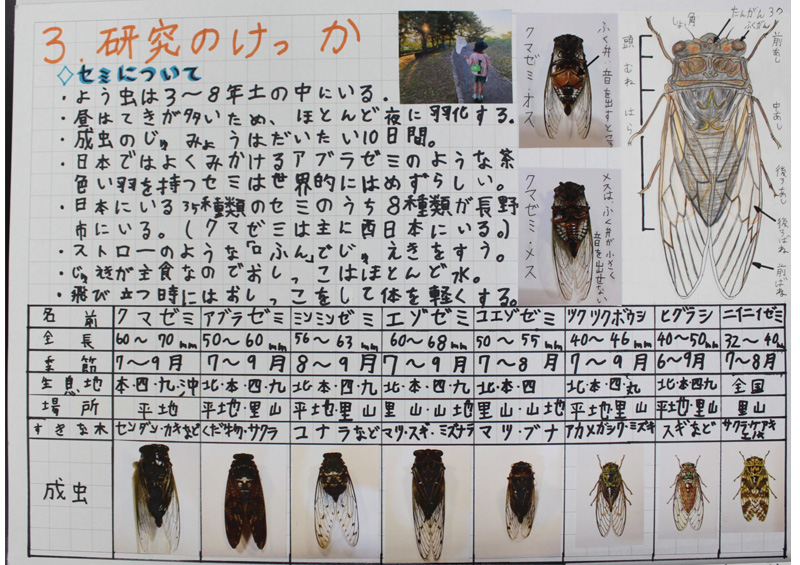 3. 研究のけっか
◇セミについて
・よう虫は3〜8年土の中にいる。
・昼はてきが多いため、ほとんど夜に羽化する。
・成虫のじゅみょうはだいたい10日間。
・日本ではよくみかけるアブラゼミのような茶
色い羽を持つセミは世界的にはめずらしい。
・日本にいる35種類のセミのうち8種類が長野
市にいる。(クマゼミは主に西日本にいる。)
ストローのような「口ふん」でじゅえきをすう。
・じゅえきが主食なのでおしっこはほとんど水。
・飛び立つ時にはおしっこをして体を軽くする。
クマゼミ・オス
ふく弁(音を出すところ
クマゼミ・メス
メスはふく弁が小さく
音を出せない
しょっ角
たんがん3つ
ふくがん
頭 むね はら
前あし
中あし
後ろあし
後ろばね
前ばね
名前 クマゼミ アブラゼミ ミンミンゼミ エゾゼミ コエゾゼミ ツクツクボウシ ヒグラシ ニイニイゼミ
全長 60〜70mm 50〜60mm 56〜63mm 60〜68mm 50〜55mm 40〜46mm 40〜50mm 32〜40mm
季節 7〜9月 7〜9月 8〜9月 7〜9月 7〜8月 7〜9月 6〜9月 7〜8月
生息地 本・四・九・沖 北・本・四・九 北・本・四・九 北・本・四・九 北・本・四 北・本・四・九 北・本・四九 全国
場所 平地 平地・里山 平地・里山 里山・山地 里山・山地 平地・里山 平地・里山 里山
すきな木 センダン・カキなど くだ物・サクラ コナラなど マツ・スギ・ミズナラ マツ・ブナ アカメガシワ・ミズキ スギなど サクラ・ケヤキ
成虫